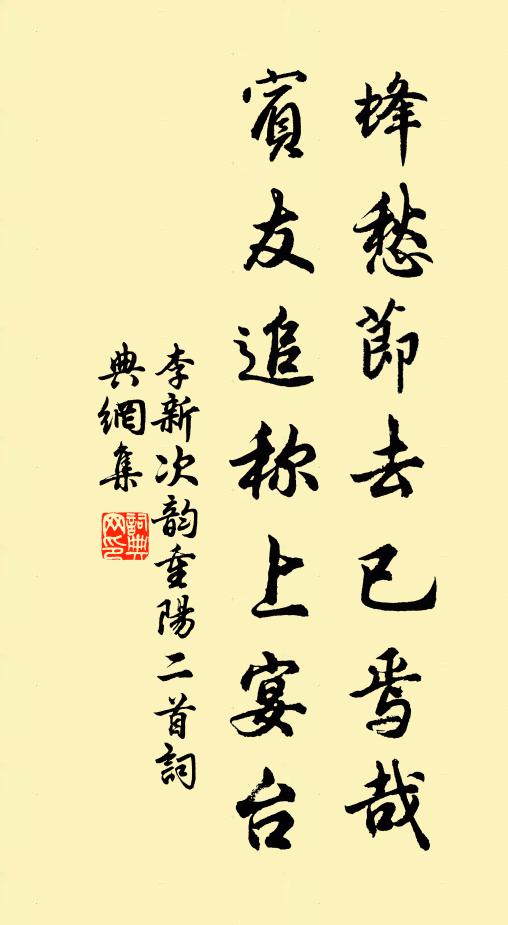 蜂愁節去已焉哉
賓友追称上宴台
李新次韵重陽二首詞
典網集
詞典
网印